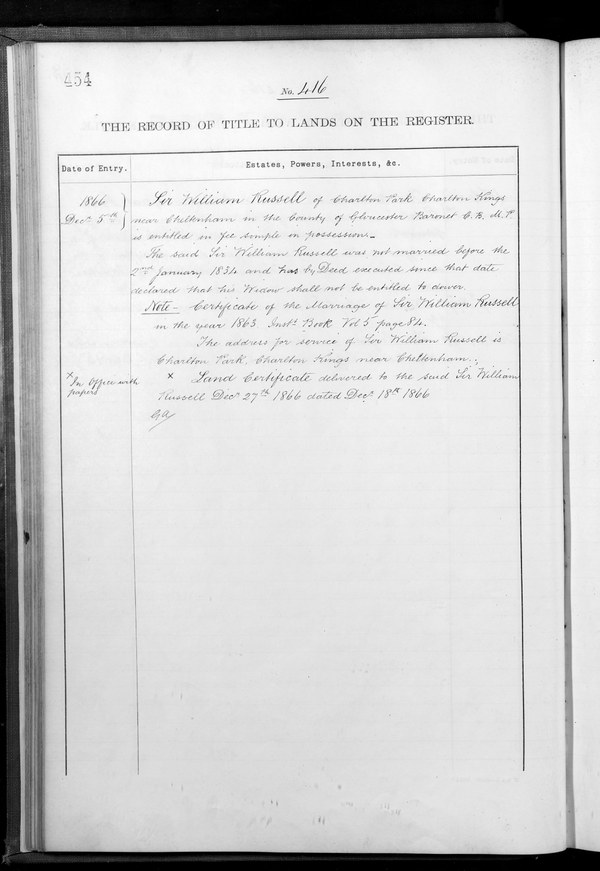 454
No. 416
THE RECORD OF TITLE TO LANDS ON THE REGISTER.
Date of Entry.
Estates, Powers, Interests, &c.
1866
Decr 5th
Sir William Russell of Charlton Park Charlton Kings
near Cheltenham in the County of Gloucester Baronet C.B. M.P.
is entitled in fee simple in possession.
The said Sir William Russell was not married before the
2nd January 1834 and has by Deed executed since that date
declared that his Widow shall not be entitled to dower.
Note - Certificate of the Marriage of Sir William Russell
in the year 1863 Inst. Book Vol 5 page 84.
The address for service of Sir William Russell is
Charlton Park, Charlton Kings near Cheltenham.
x In Office with
papers
x Land Certificate delivered to the said Sir William
Russell Decr 27th 1866 dated Decr 18th 1866